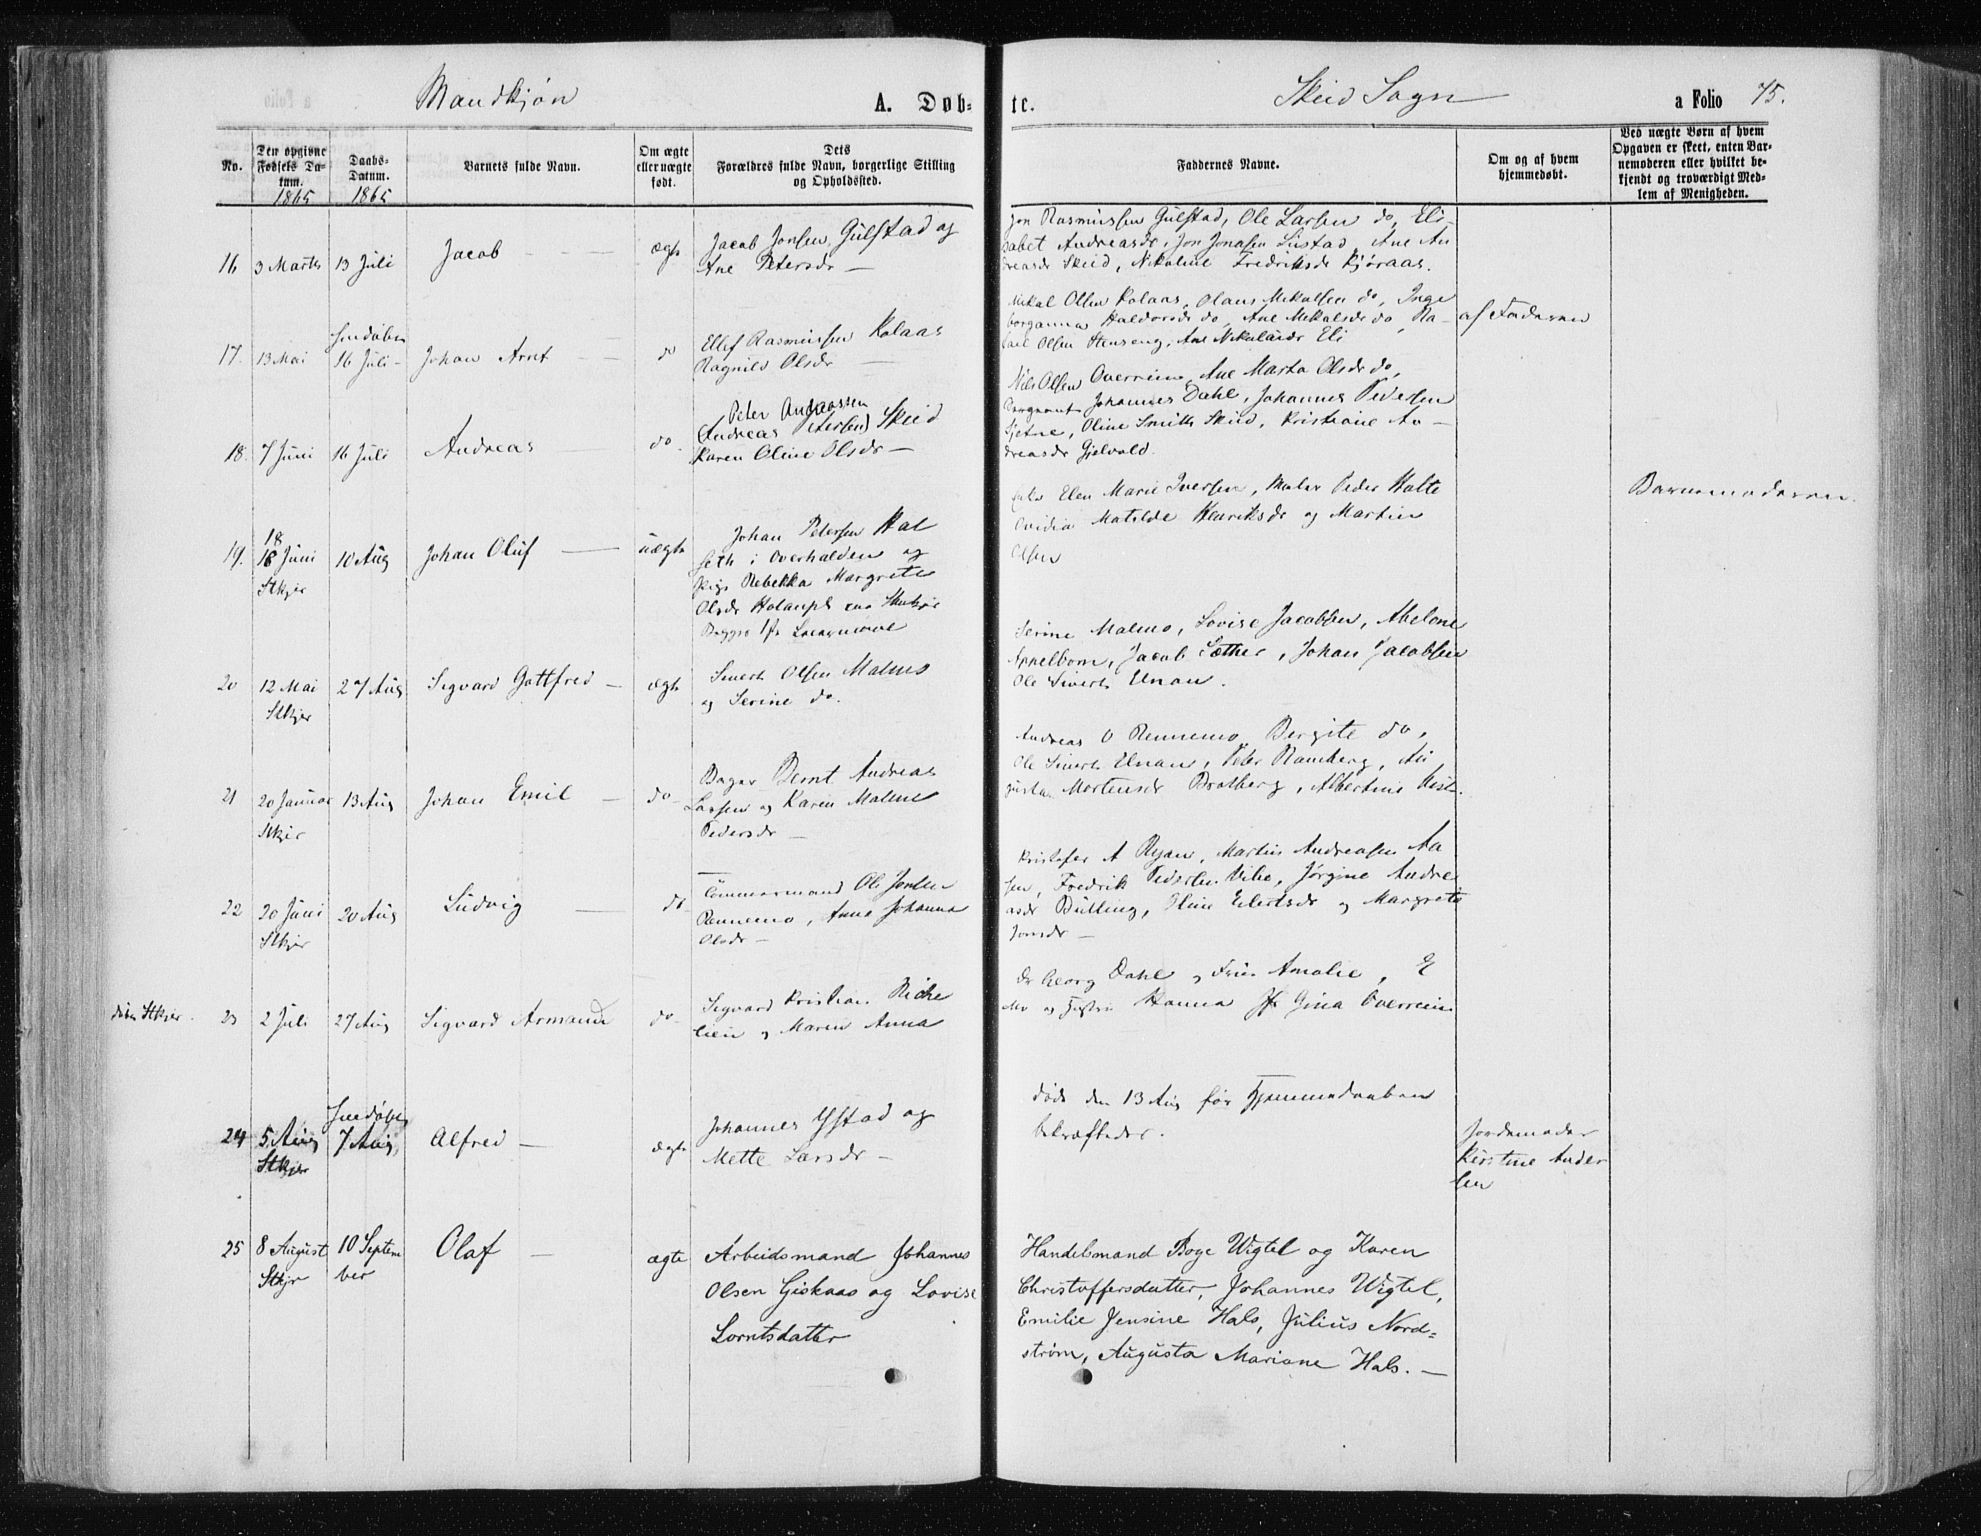 Mandkjøn
A. Døb-
te.
Skeid Sogn
a Folio 75.
No.
Den opgivne Fødsels Datum. 1865
Daabs-Datum. 1865
Barnets fulde Navn.
Om ægte eller uægte født.
Dets Forældres fulde Navn, borgerlige Stilling og Opholdssted.
Faddernes Navne.
Om og af hvem hjemmedøbt.
Ved uægte Børn af hvem Opgaven er skeet, enten Barnemoderen eller hvilket bekjendt og troværdigt Medlem af Menigheden.
16 3 Marts 13 Juli Jacob ægte
Jacob Jonsen Gulstad og
Ane Petersdr
Jon Rasmussen Gulstad, Ole Larsen do, Eli-
sabet Andreasdr, Jon Jonasen Sustad, Ane An
dreasdr Skeid, Nikoline Fredriksdr Kjøraas.
17. 13 Mai 16 Juli Johan Arnt do
Ellef Rasmussen Kolaas
Ragnild Olsdr
Mikal Olsen Kolaas, Olaus Mikalsen do, Inge
borganna Haldorsdr do, Ane Mikalsdr do, Ra-
Olsen Stenseng, Ane Nikolaisdr Eli
af Faderen
18. 7 Juni 16 Juli Andreas do.
Peter Andreassen
(Andreas Petersen) Skeid
Karen Oline Olsdr
Nils Olsen Overrein, Ane Marta Olsdr do,
Johannes Dahl, Johannes Pedersen
Oline Smith Skeid, Kristiane An-
dreasdr Gjelvold.
19. 18 Juni 10 Aug Johan Oluf uægte
Stkjer
Johan Petersen Hal
seth i Overhalden og
Pige Rebekka Margrete
Olsdr
Elen Marie Iversen, Maler Peder Holte
Ovidia Matilde Henriksdr og Martin
Olsen
Barnemoderen.
20 12 Mai 27 Aug Sigvard Gottfred ægte
Stkjer
Sivert Olsen Malmo
og Serine do.
Serine Malmo, Lovise Jacobsen, Abelone
Appelbom, Jacob Sæther, Johan Jacobsen
Ole Sivert Unan.
21 20 Januar 13 Aug Johan Emil do
Stkjer
Bager Bernt Andreas
Larsen og Karen Malene
Pedersdr
Andreas O Rennemo, Bergite do,
Ole Sivert Unan, Peter Ramberg, Au
gusta Mortensdr Bratberg, Albertine
22 20 Juni 20 Aug Ludvig do
Stkjer
Tömmermand Ole Jonsen
Rennemo, Anna Johanna
Olsdr
Kristofer A Ryan, Martin Andreasen Aa
sen, Fredrik Pedersen Vibe, Jørgine Andre
asdr Bulling, Oline Eilertsdr og Margrete
Jonsdr
23 2 Juli 27 Aug Sigvard Armand do
Sigvard Kristian Riche
lieu og Maren Anna
Dr Georg Dahl og Frue Amalie, E
Mo og Hanna Jfr Gina Overrein
24 5 Aug 7 Aug, Alfred ægte
Stkjer
Johannes Ystad og
Mette Larsdr
døde den 13 Aug før Hjemmedaaben
bekræftedes.
Jordemoder
Kirstine Ander
sen
25 8 August 10 Septem Olaf ægte
Stkjr ber
Arbeidsmand Johannes
Olsen Giskaas og Lovise
Lorntsdatter
Handelsmand Boye Wigtel og Karen
Christoffersdatter, Johannes Wigtel,
Emilie Jensine Hals, Julius Nord-
strøm, Augusta Mariane Hals.